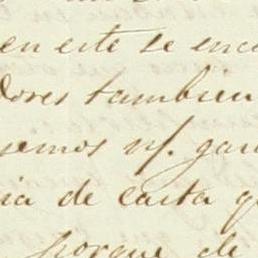 en este se enco
dores tambien
semos vs. gan
ia de carta q
porque de